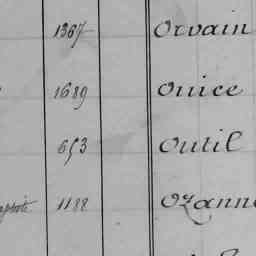 1367 Orvain
1689 Ouice
653 Outil
1188 Ozanne